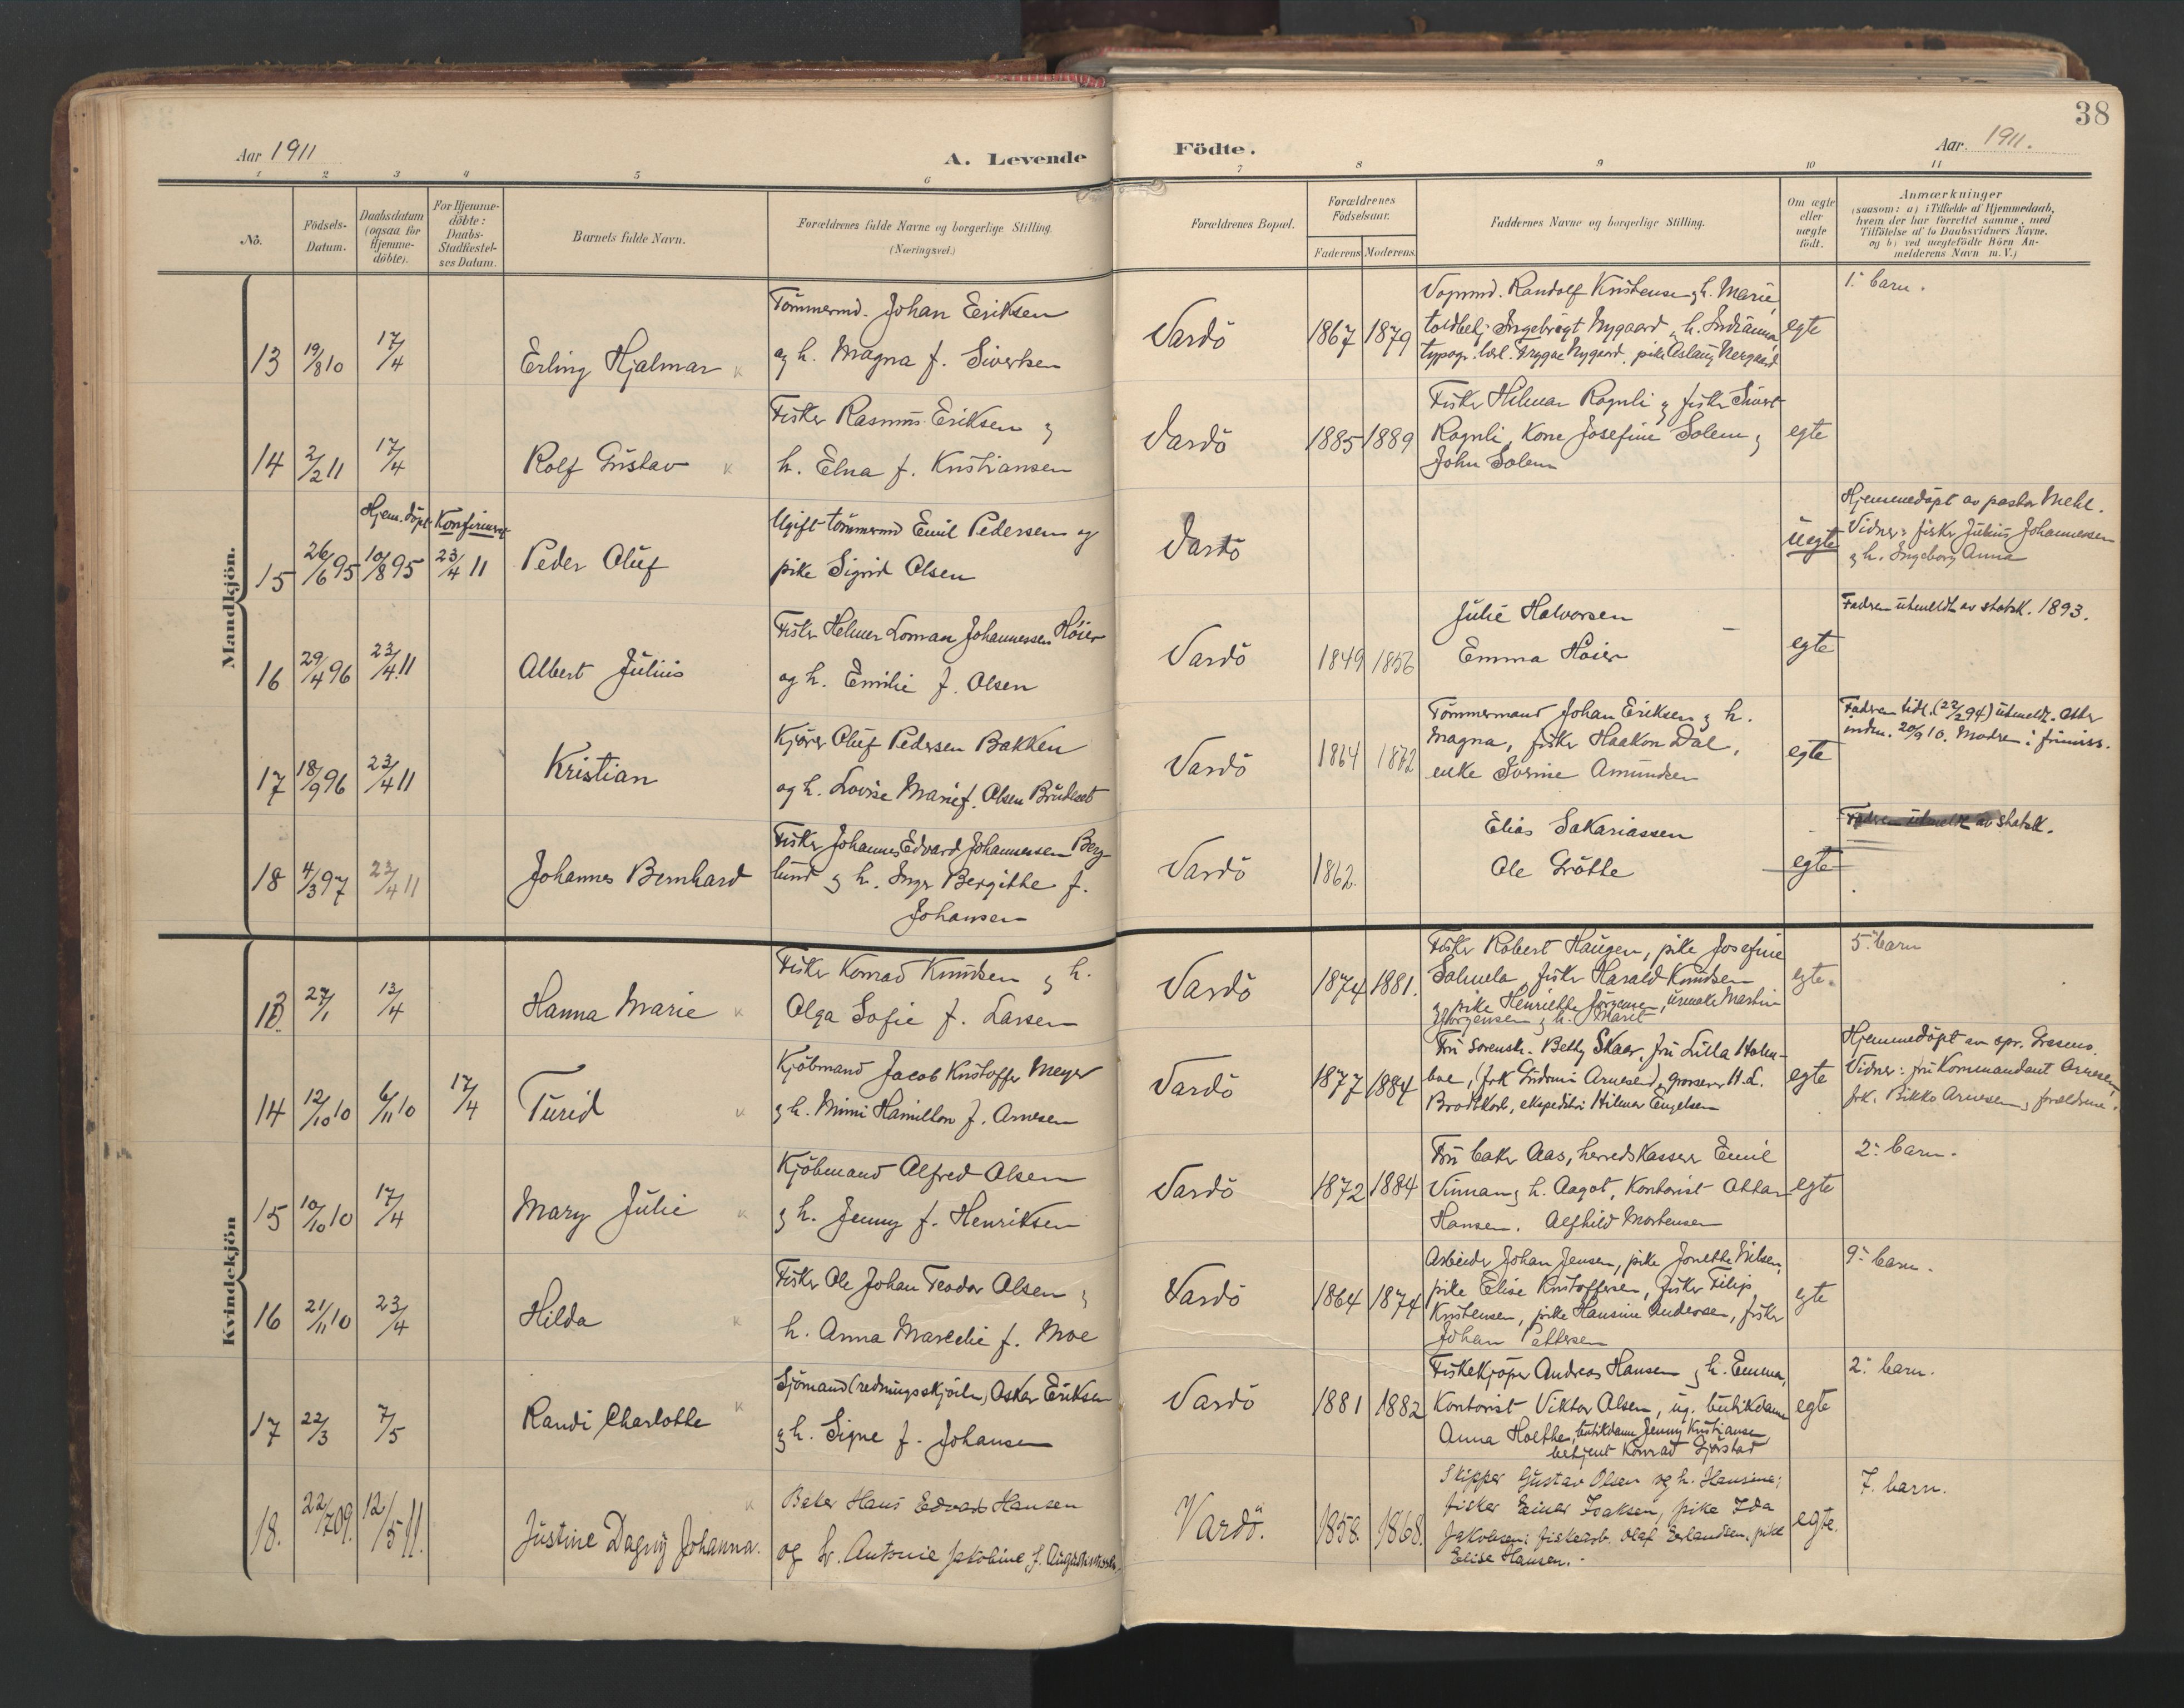 38
Aar 1911
A. Levende
Födte.
Aar. 1911.
1 2 3 4 5 6 7 8 9 10 11
No.
Födsels-
Datum.
Daabsdatum
(ogsaa for
Hjemme-
döbte).
For Hjemme-
döbte:
Daabs-
Stadfæstel-
ses Datum.
Barnets fulde Navn.
Forældrenes fulde Navne og borgerlige Stilling
(Næringsvei.)
Forældrenes Bopæl.
Forældrenes
Födselsaar.
Faderens Moderens
Faddernes Navne og borgerlige Stilling.
Om ægte
eller
uægte
födt.
Anmærkninger
(saasom: a) i Tilfælde af Hjemmedaab,
hvem der har forrettet samme, med
Tilföielse af to Daabsvidners Navne,
og b) ved uægtefödte Börn An-
melderens Navn m. V.)
Mandkjön.
13 19/8 10 17/4 Erling Hjalmar
Tömmermd. Johan Eriksen
og h. Magna f. Sivertsen
Vardö 1867 1879
Vognmd. Randolf Kristensen g h. Marie,
toldbetj. Ingebrigt Nygaard
typogr. Trygve Nygaard, pike Aslaug Nergaard
egte
1. barn.
14 2/2 11 17/4 Rolf Gustav
Fisker Rasmus Eriksen g
h. Elna f. Kristiansen
Vardö 1885 1889
Fisker Hilmar Rognli g fisker Sivert
Rognli, Kone Josefine Solem g
John Solem
egte
Hjem. döpt Konfirmert
15 26/6 95 10/8 95 23/4 11 Peder Oluf
Ugift tömmermd Emil Pedersen og
pike Sigrid Olsen
Vardö
uegte
Hjemmedöpt av pastor Mehl.
Vidner: fisker Julius Johannessen
g h. Ingeborg Anna
16 29/4 96 23/4 11 Albert Julius
Fisker Helmer Loman Johannessen Höier
og h. Emilie f. Olsen
Vardö 1849 1856
Julie Halvorsen
Emma Höier
egte
Fadren utmeldt av statsk. 1893.
17 18/9 96 23/4 11 Kristian
Kjörer Oluf Pedersen Bakken
og h. Lovise Marie f. Olsen Brudeset
Vardö 1864 1862
Tömmermand Johan Eriksen g h.
Magna, fisker Haakon Dal,
enke Josine Amundsen
egte
Fadren tidl. (22/2 94) utmeldt. Atter
indm. 20/9 10. Modren i
18 4/3 97 23/4 11 Johannes Bernhard
Fisker Johannes Edvard Johannessen Berg-
lund g h. Inger Bergithe f.
Johansen
Vardö 1862.
Elias Sakariassen
Ole Gröthe
egte
Fadren utmeldt av statsk.
Kvindekjön
13. 27/1 12/4 Hanna Marie
Fisker Konrad Knudsen g h.
Olga Sofie f. Larsen
Vardö 1874 1881.
Fisker Robert Haugen, pike Josefine
Salmela, fisker Harald Knudsen
g pike Henriette Jörgensen, urmaker Martin
Jörgensen g h. Marit
egte.
5. barn
14 12/10 10 6/11 10 17/4 Turid
Kjöbmand Jacob Kristoffer Meyer
g h. Mimi Hamilton f. Arnesen
Vardö 1877 1884
Fru Sorenskr. Betty Skaar, fru Lilla Holm-
boe, frk Arnesen, grosserer H. L.
Brodtkorb, ekspeditör Hilmar Engelsen
egte
Hjemmedöpt av spr.
Vidner: fru Kommandant Arnesen,
frk. Bikko Arnesen g foreldrene.
15 10/10 10 17/4 Mary Julie
Kjöbmand Alfred Olsen
g h. Jenny f. Henriksen
Vardö 1872 1884
Fru baker Aas, herredskasserer Emil
Vinnan g h. Aagot, Kontorist Ottar
Hansen. Alfhild Mortensen
egte
2. barn.
16 21/11 10 23/4 Hilda
Fisker Ole Johan Teodor Olsen g
h. Anna Marselie f. Moe
Vardö 1864 1874
Arbeider Johan Jensen, pike Jonette Nilsen,
pike Elise Kristoffersen, fisker Filip
Kristensen, pike Hansine Andersen, fisker
Johan Pettersen
egte
9. barn.
17 22/3 7/5 Randi Charlotte
Sjömand (redningsskjöite) Oskar Eriksen
g h. Signe f. Johansen
Vardö 1881 1882
Fiskekjöper Andreas Hansen g h. Emma,
Kontorist Viktor Olsen, ug. butikdame
Anna Holthe, butikdame Jenny Kristiansen,
betjent Konrad Gjerstad
egte
2. barn.
18. 22/7 09. 12/5 11. Justine Dagny Johanna.
Baker Hans Edvard Hansen
og h. Antonie Jakobine f. Augustinussen.
Vardö. 1858. 1868.
Skipper Gustav Olsen og h. Hansine;
fisker Einar Isaksen, pike Ida
Jakobsen; fiskearb. Olaf Erlandsen, pike
Elise Hansen.
egte.
7. barn.